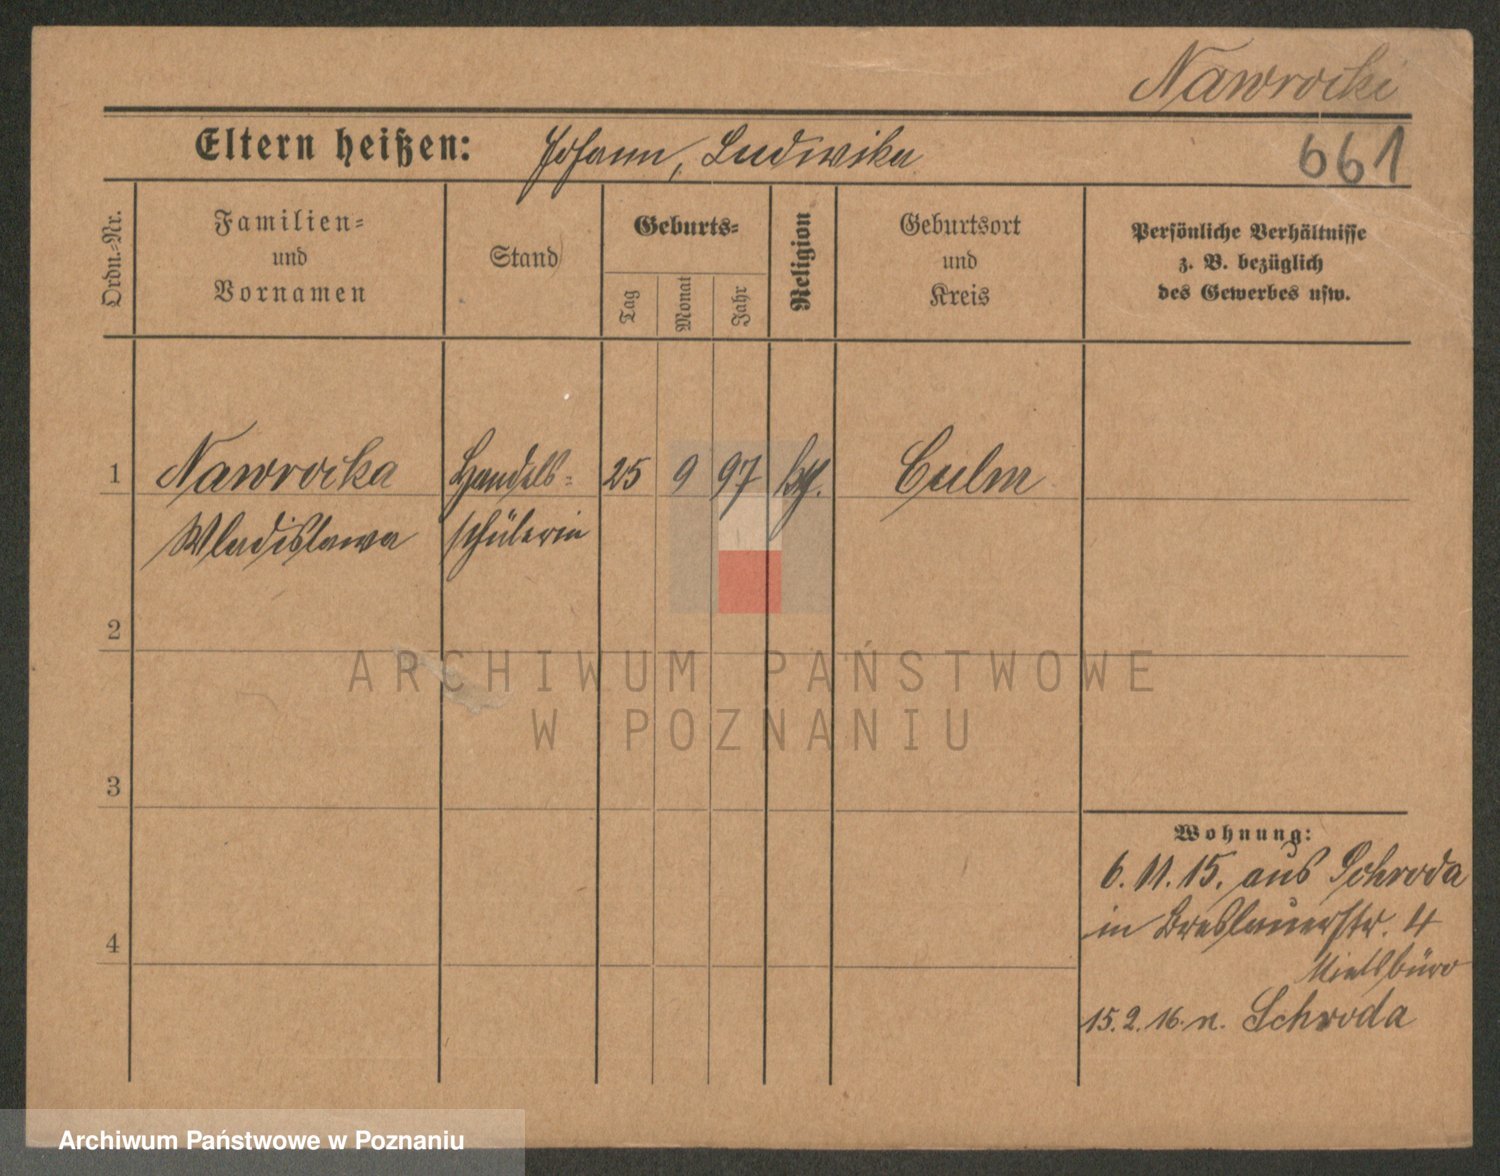 Nawrocki
Eltern heißen: Johann, Ludwika
661
Ordn.-Nr.
Familien-
und
Vornamen
Stand
Geburts-
Tag
Monat
Jahr
Religion
Geburtsort
und
Kreis
Persönliche Verhältnisse
z. B. bezüglich
des Gewerbes usw.
1 Nawrocka Handels- 25 9 97 kth. Culm
Wladislawa schülerin
2
3
4
Wohnung:
6. 11. 15. aus Schroda
in Breslauerstr. 4
Mietsbüro
15. 2. 16. n. Schroda
ARCHIWUM PAŃSTWOWE
W POZNANIU
Archiwum Państwowe w Poznaniu